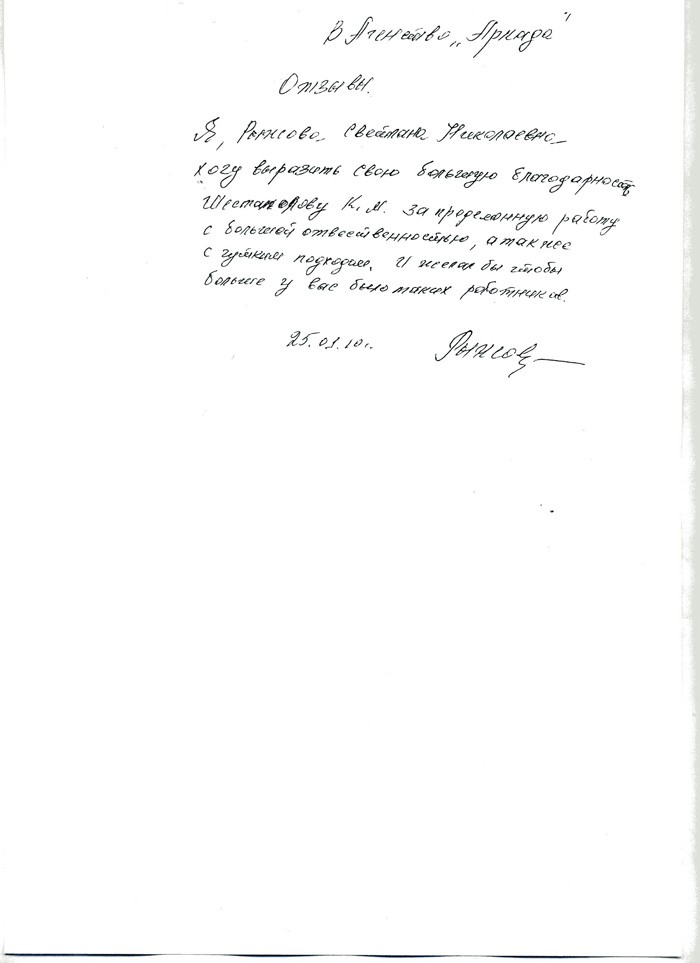 В Агенство „Аркада"
Отзывы.
Я, Рыжова Светлана Николаевна
хочу выразить свою большую благодарность
К. М. за проделанную работу
с большой отвественностью, а так же
с чутким подходом. И желал бы чтобы
больше у вас было таких работников.
25.01.10г. Рыжова